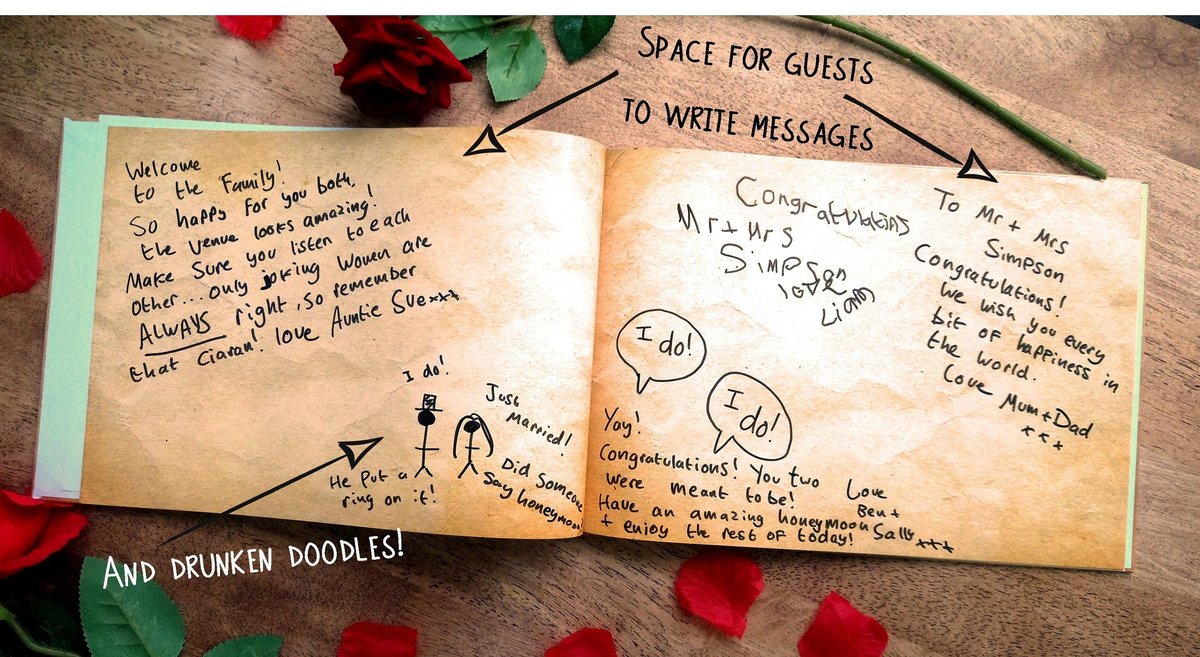 SPACE FOR GUESTS
TO WRITE MESSAGES
Welcome
to the Family!
So happy for you both,
the venue looks amazing!
Make Sure you listen to each
other... only joking Women are
ALWAYS right, so remember
that Ciaran! love Auntie Sue xxx
I do!
Just
Married!
He Put a
ring on it!
Did Someone
Say honeymoon
AND DRUNKEN DOODLES!
Congratulatins
Mr + Mrs
Simpson
love
Liam
To Mr + Mrs
Simpson
Congratulations!
We wish you every
bit of happiness in
the world.
Love Mum + Dad
x x x
I do!
I do!
Yay!
Congratulations! You two
were meant to be!
Have an amazing honeymoon
+ enjoy the rest of today!
Love
Ben +
Sally xxx